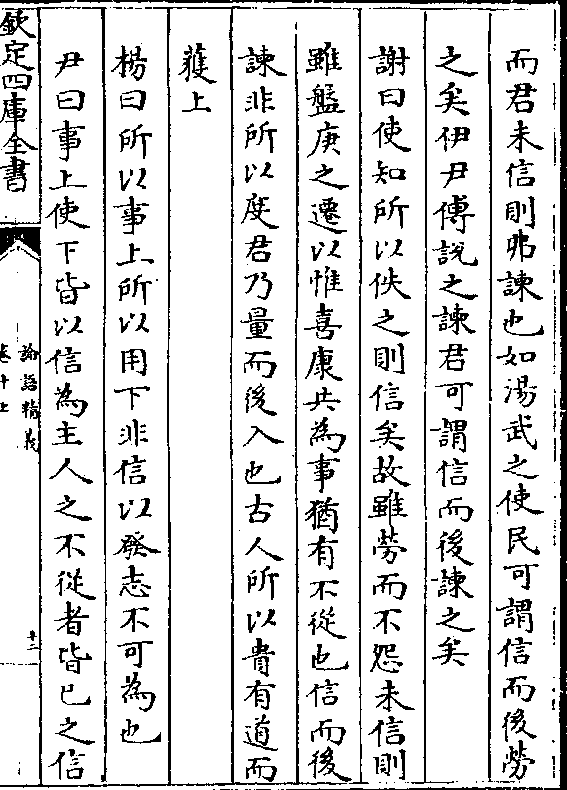 而君未信則弗諫也如湯武之使民可謂信而後勞
之矣伊尹傅說之諫君可謂信而後諫之矣
謝曰使知所以佚之則信矣故雖勞而不怨未信則
雖盤庚之遷以惟喜康共為事猶有不從也信而後
諫非所以度君乃量而後入也古人所以貴有道而
獲上
楊曰所以事上所以用下非信以發志不可為也
尹曰事上使下皆以信為主人之不從者皆已之信
欽定四庫全書
論語精義
卷十上
十二